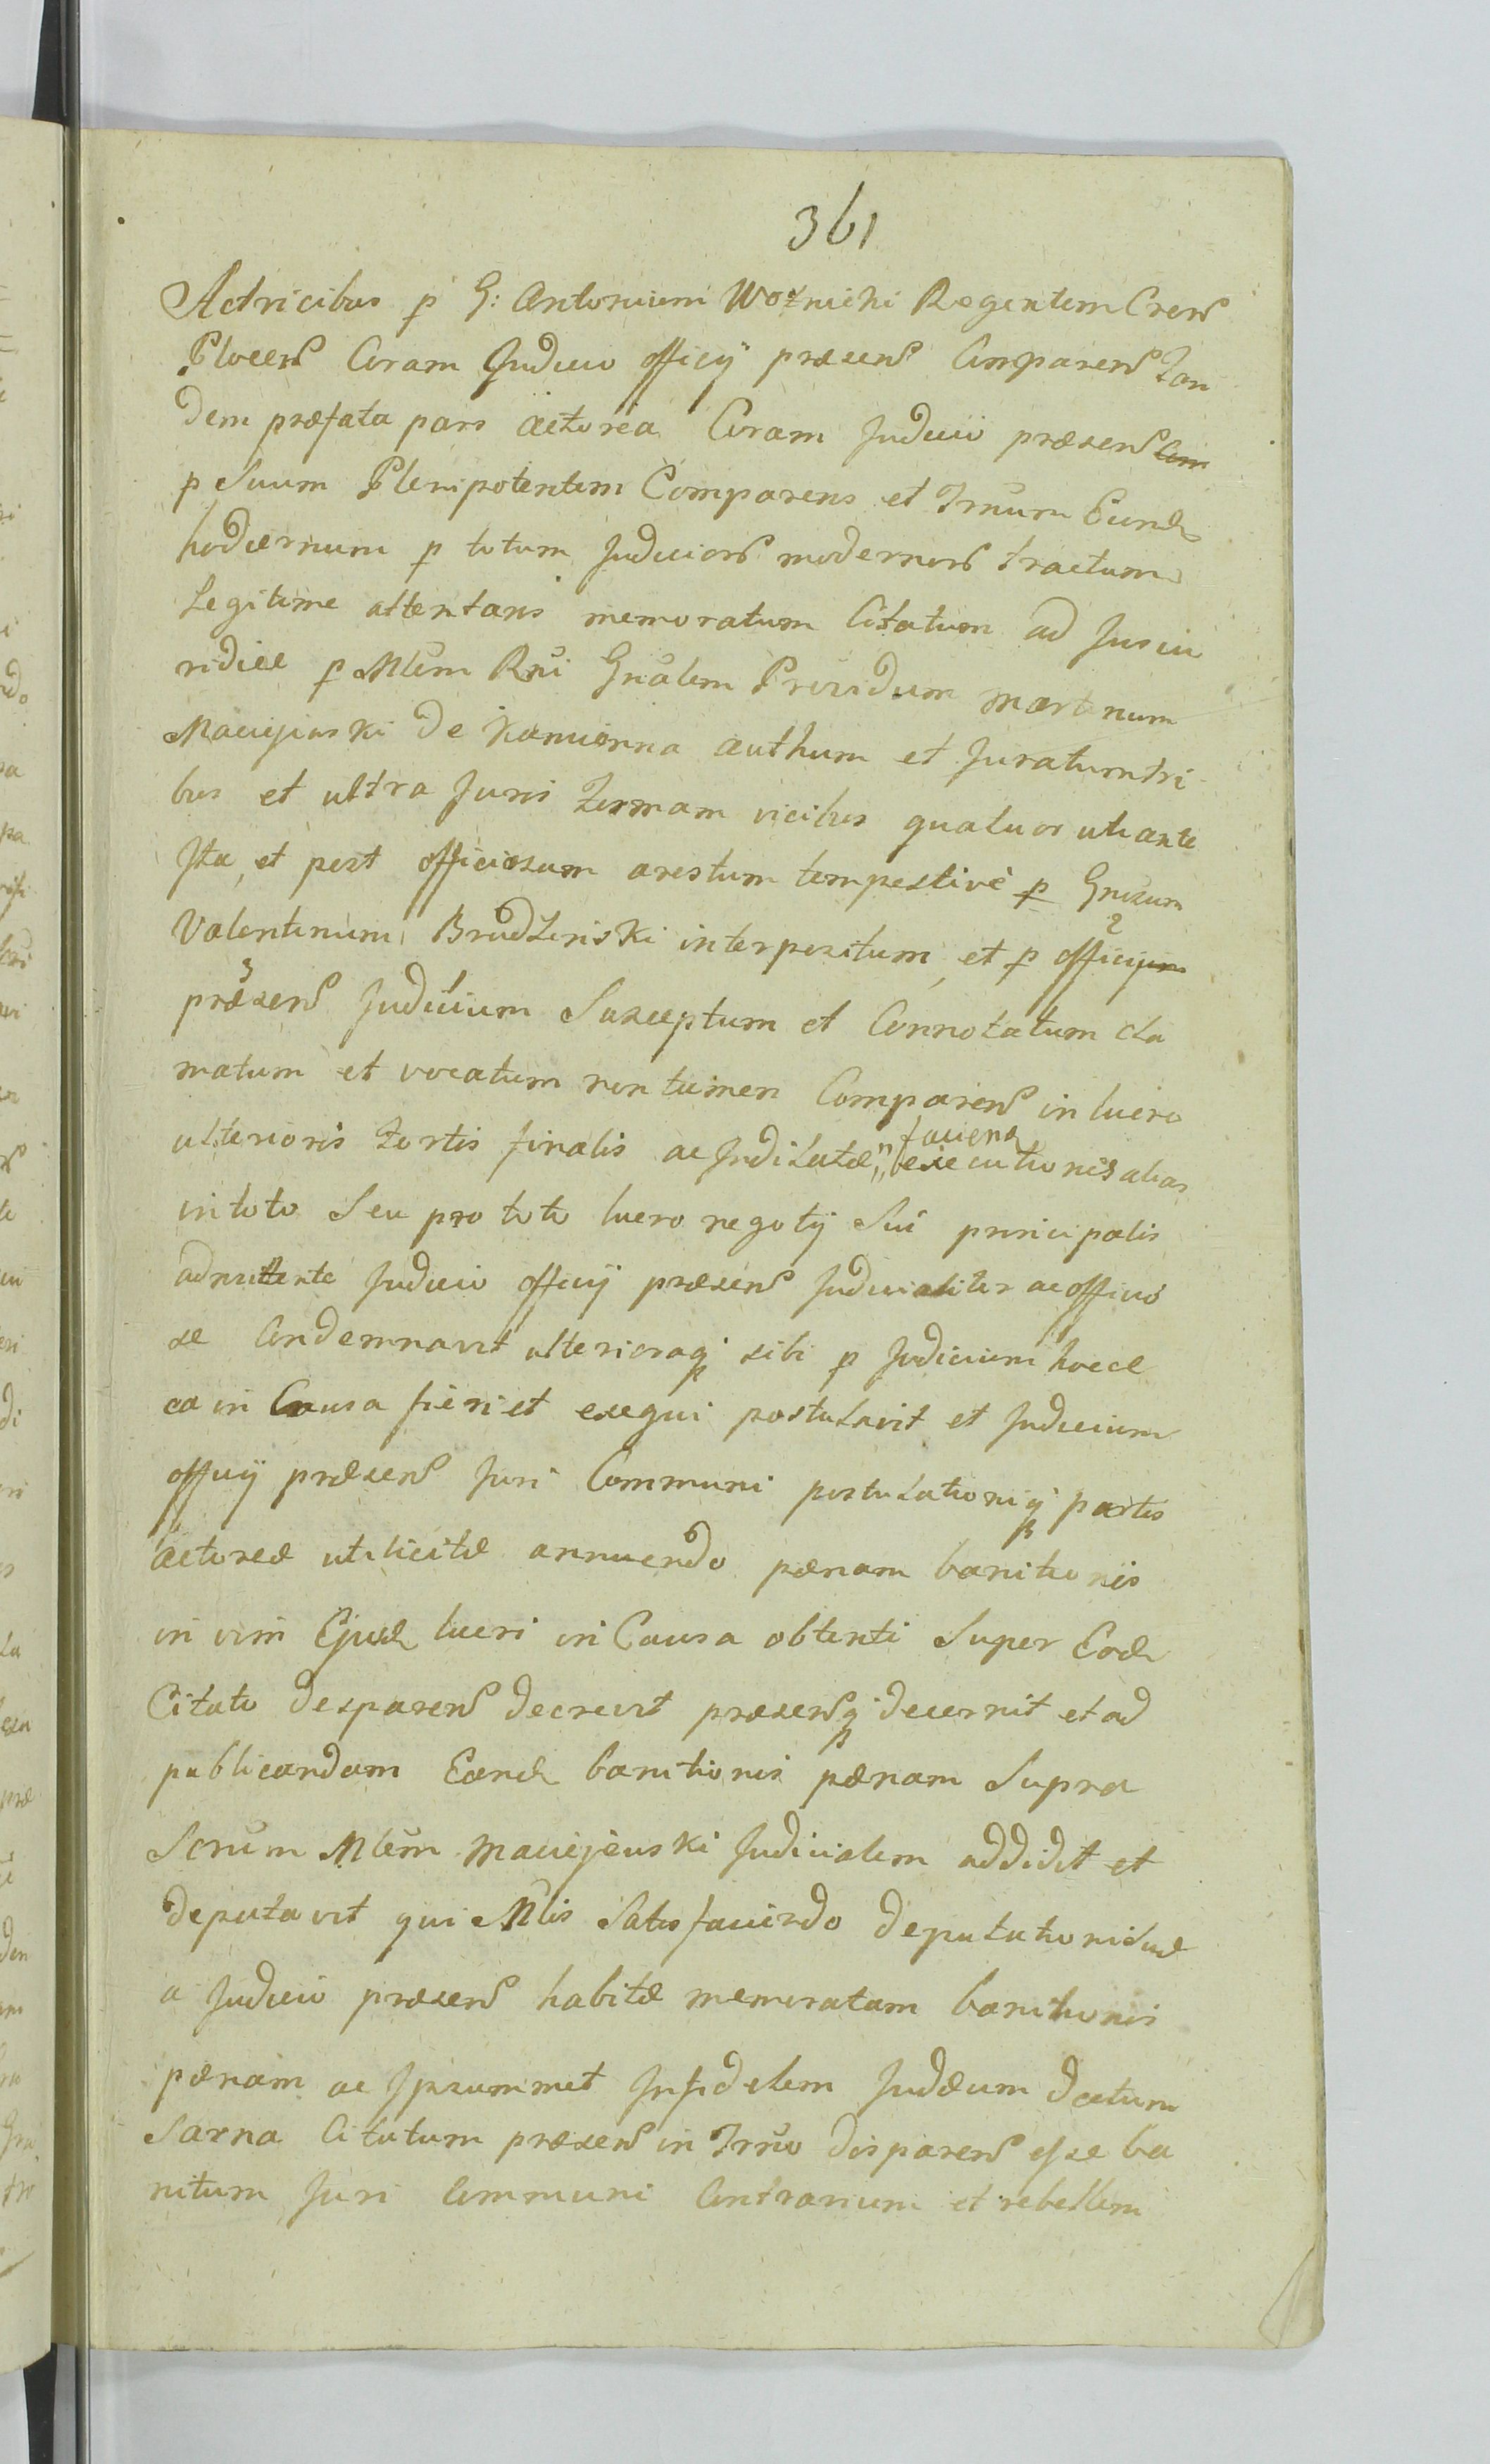 361
Actricibus p G: Antonium Woźnicki Regentem Crens
Plocens Coram Judicio officij præsens Comparens Tan
dem præfata pars actorea Coram Judicio præsens Com
p Suum Plenipotentem Comparens et Trnum Eund
hodiernum p totum Judiciors modernors tractum
Legitime attentans memoratum Citatum ad Jus iu
ridice p Mlem Rni Gnalem Providum Martinum
Maciejewski de Kamionna authum et Juratum tri
bus et ultra Juris Formam vicibus quatuor uti ante
Ita, et post officiosum arestum tempestivè p Gnosum
Valentinum Brudzinski interpositum, et p officijum 2
3 præsens Judicium Susceptum et Connotatum cla
matum et vocatum non tamen Comparens in lucro
ulterioris Fortis finalis ac Inditatæ faciend executionis alias
in toto Seu pro toto lucro negotij Sui principalis
admittente Judicio officij præsens Judicialiter ac officio
se Condemnavit ulterioraq sibi p Judicium hocce
ea in Causa fieri et exequi postulavit et Judicium
officij præsens Juri Communi postulationiq partis
actoreæ uti licitæ annuendo pænam banitionis
in vim Ejusd lucri in Causa obtenti Super Eod
Citato desparens decrevit præsensq decernit et ad
publicandam Eand banitionis pænam Supra
Scrum Mlem Maciejewski Judicialem addidit et
deputavit qui Mlis Satisfaciendo deputationi suæ
a Judicio præsens habitæ memoratam banitionis
pænam ac Ipsummet Infidelem Judæum dictum
Sarna Citatum præsens in Trno disparens esse ba
nitum Juri Communi Contrarium et rebellem